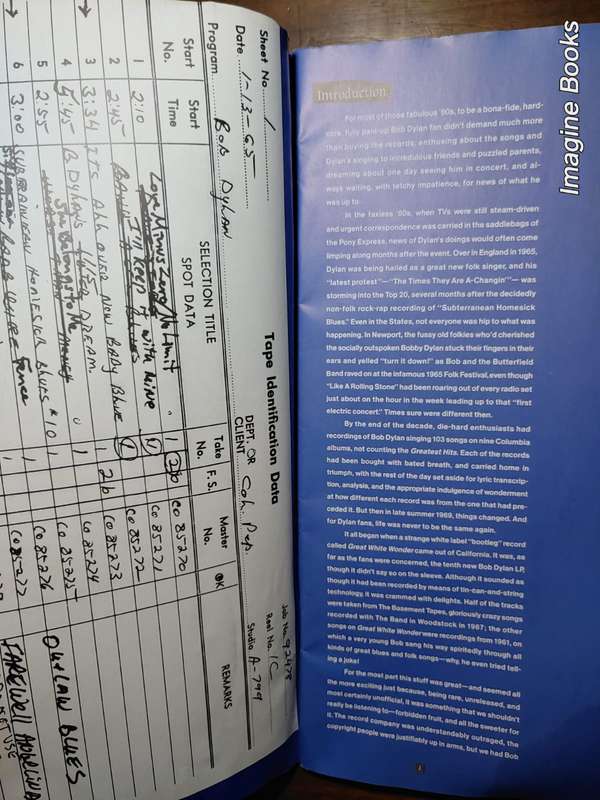 Sheet No. 1
Date 1-13-65
Program Bob Dylan
Tape Identification Data
Job No. 92478
Reel No. 1C
Studio A-799
DEPT. OR CLIENT Col. Pop.
Start No.
Start Time
SELECTION TITLE
SPOT DATA
Take No.
F.S.
Master No.
OK
REMARKS
1 2:10 Love Minus Zero/No Limit 1 2b Co 85270
2 2:45 I'll Keep it with Mine 1 Co 85271
Co 85272
3 3:34 It's All Over Now Baby Blue 1 2b Co 85273
4 5:45 B Dylan's Dream 1 Co 85274
She Belongs to Me 1 Co 85275
5 2:55 SUBTERRANEAN HOMESICK BLUES #10 1 Co 85276
6 3:00 1 Co 85277
OUTLAW BLUES
FAREWELL ANGELINA
Introduction
For most of those fabulous '60s, to be a bona-fide, hard-
core, fully paid-up Bob Dylan fan didn't demand much more
than buying the records, enthusing about the songs and
Dylan's singing to incredulous friends and puzzled parents,
dreaming about one day seeing him in concert, and al-
ways waiting, with tetchy impatience, for news of what he
was up to.
In the faxless '60s, when TVs were still steam-driven
and urgent correspondence was carried in the saddlebags of
the Pony Express, news of Dylan's doings would often come
limping along months after the event. Over in England in 1965,
Dylan was being hailed as a great new folk singer, and his
"latest protest"—"The Times They Are A-Changin'"— was
storming into the Top 20, several months after the decidedly
non-folk rock-rap recording of "Subterranean Homesick
Blues." Even in the States, not everyone was hip to what was
happening. In Newport, the fussy old folkies who'd cherished
the socially outspoken Bobby Dylan stuck their fingers in their
ears and yelled "turn it down!" as Bob and the Butterfield
Band raved on at the infamous 1965 Folk Festival, even though
"Like A Rolling Stone" had been roaring out of every radio set
just about on the hour in the week leading up to that "first
electric concert." Times sure were different then.
By the end of the decade, die-hard enthusiasts had
recordings of Bob Dylan singing 103 songs on nine Columbia
albums, not counting the Greatest Hits. Each of the records
had been bought with bated breath, and carried home in
triumph, with the rest of the day set aside for lyric transcrip-
tion, analysis, and the appropriate indulgence of wonderment
at how different each record was from the one that had pre-
ceded it. But then in late summer 1969, things changed. And
for Dylan fans, life was never to be the same again.
It all began when a strange white label "bootleg" record
called Great White Wonder came out of California. It was, as
far as the fans were concerned, the tenth new Bob Dylan LP,
though it didn't say so on the sleeve. Although it sounded as
though it had been recorded by means of tin-can-and-string
technology, it was crammed with delights. Half of the tracks
were taken from The Basement Tapes, gloriously crazy songs
recorded with The Band in Woodstock in 1967; the other
songs on Great White Wonder were recordings from 1961, on
which a very young Bob sang his way spiritedly through all
kinds of great blues and folk songs—why, he even tried tell-
ing a joke!
For the most part this stuff was great—and seemed all
the more exciting just because, being rare, unreleased, and
most certainly unofficial, it was something that we shouldn't
really be listening to—forbidden fruit, and all the sweeter for
it. The record company was understandably outraged, the
copyright people were justifiably up in arms, but we had Bob
Imagine Books